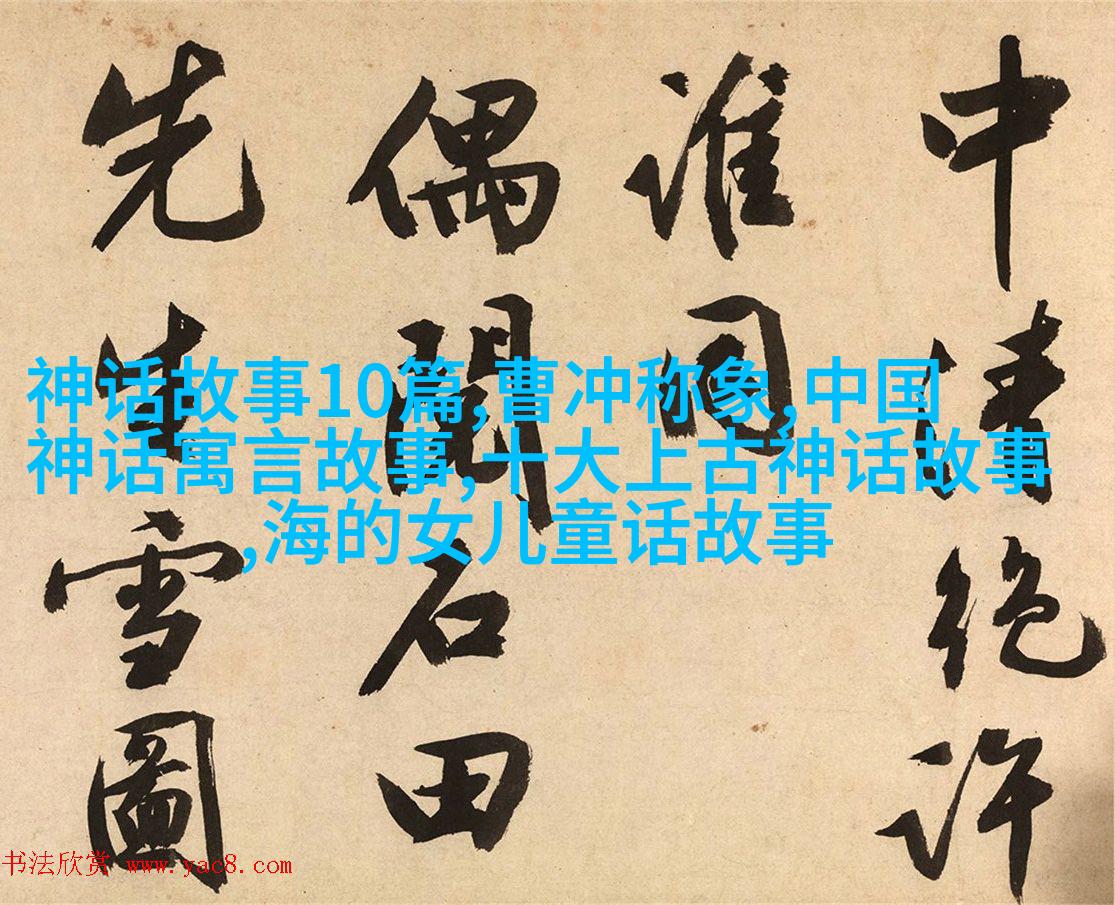 神话故事10篇,曹冲称象,中国
神话寓言故事,十大上古神话故事
,海的女儿童话故事
中情絶許
誰同
偶石田
先生雪圖
书法欣赏 www.yac8.com